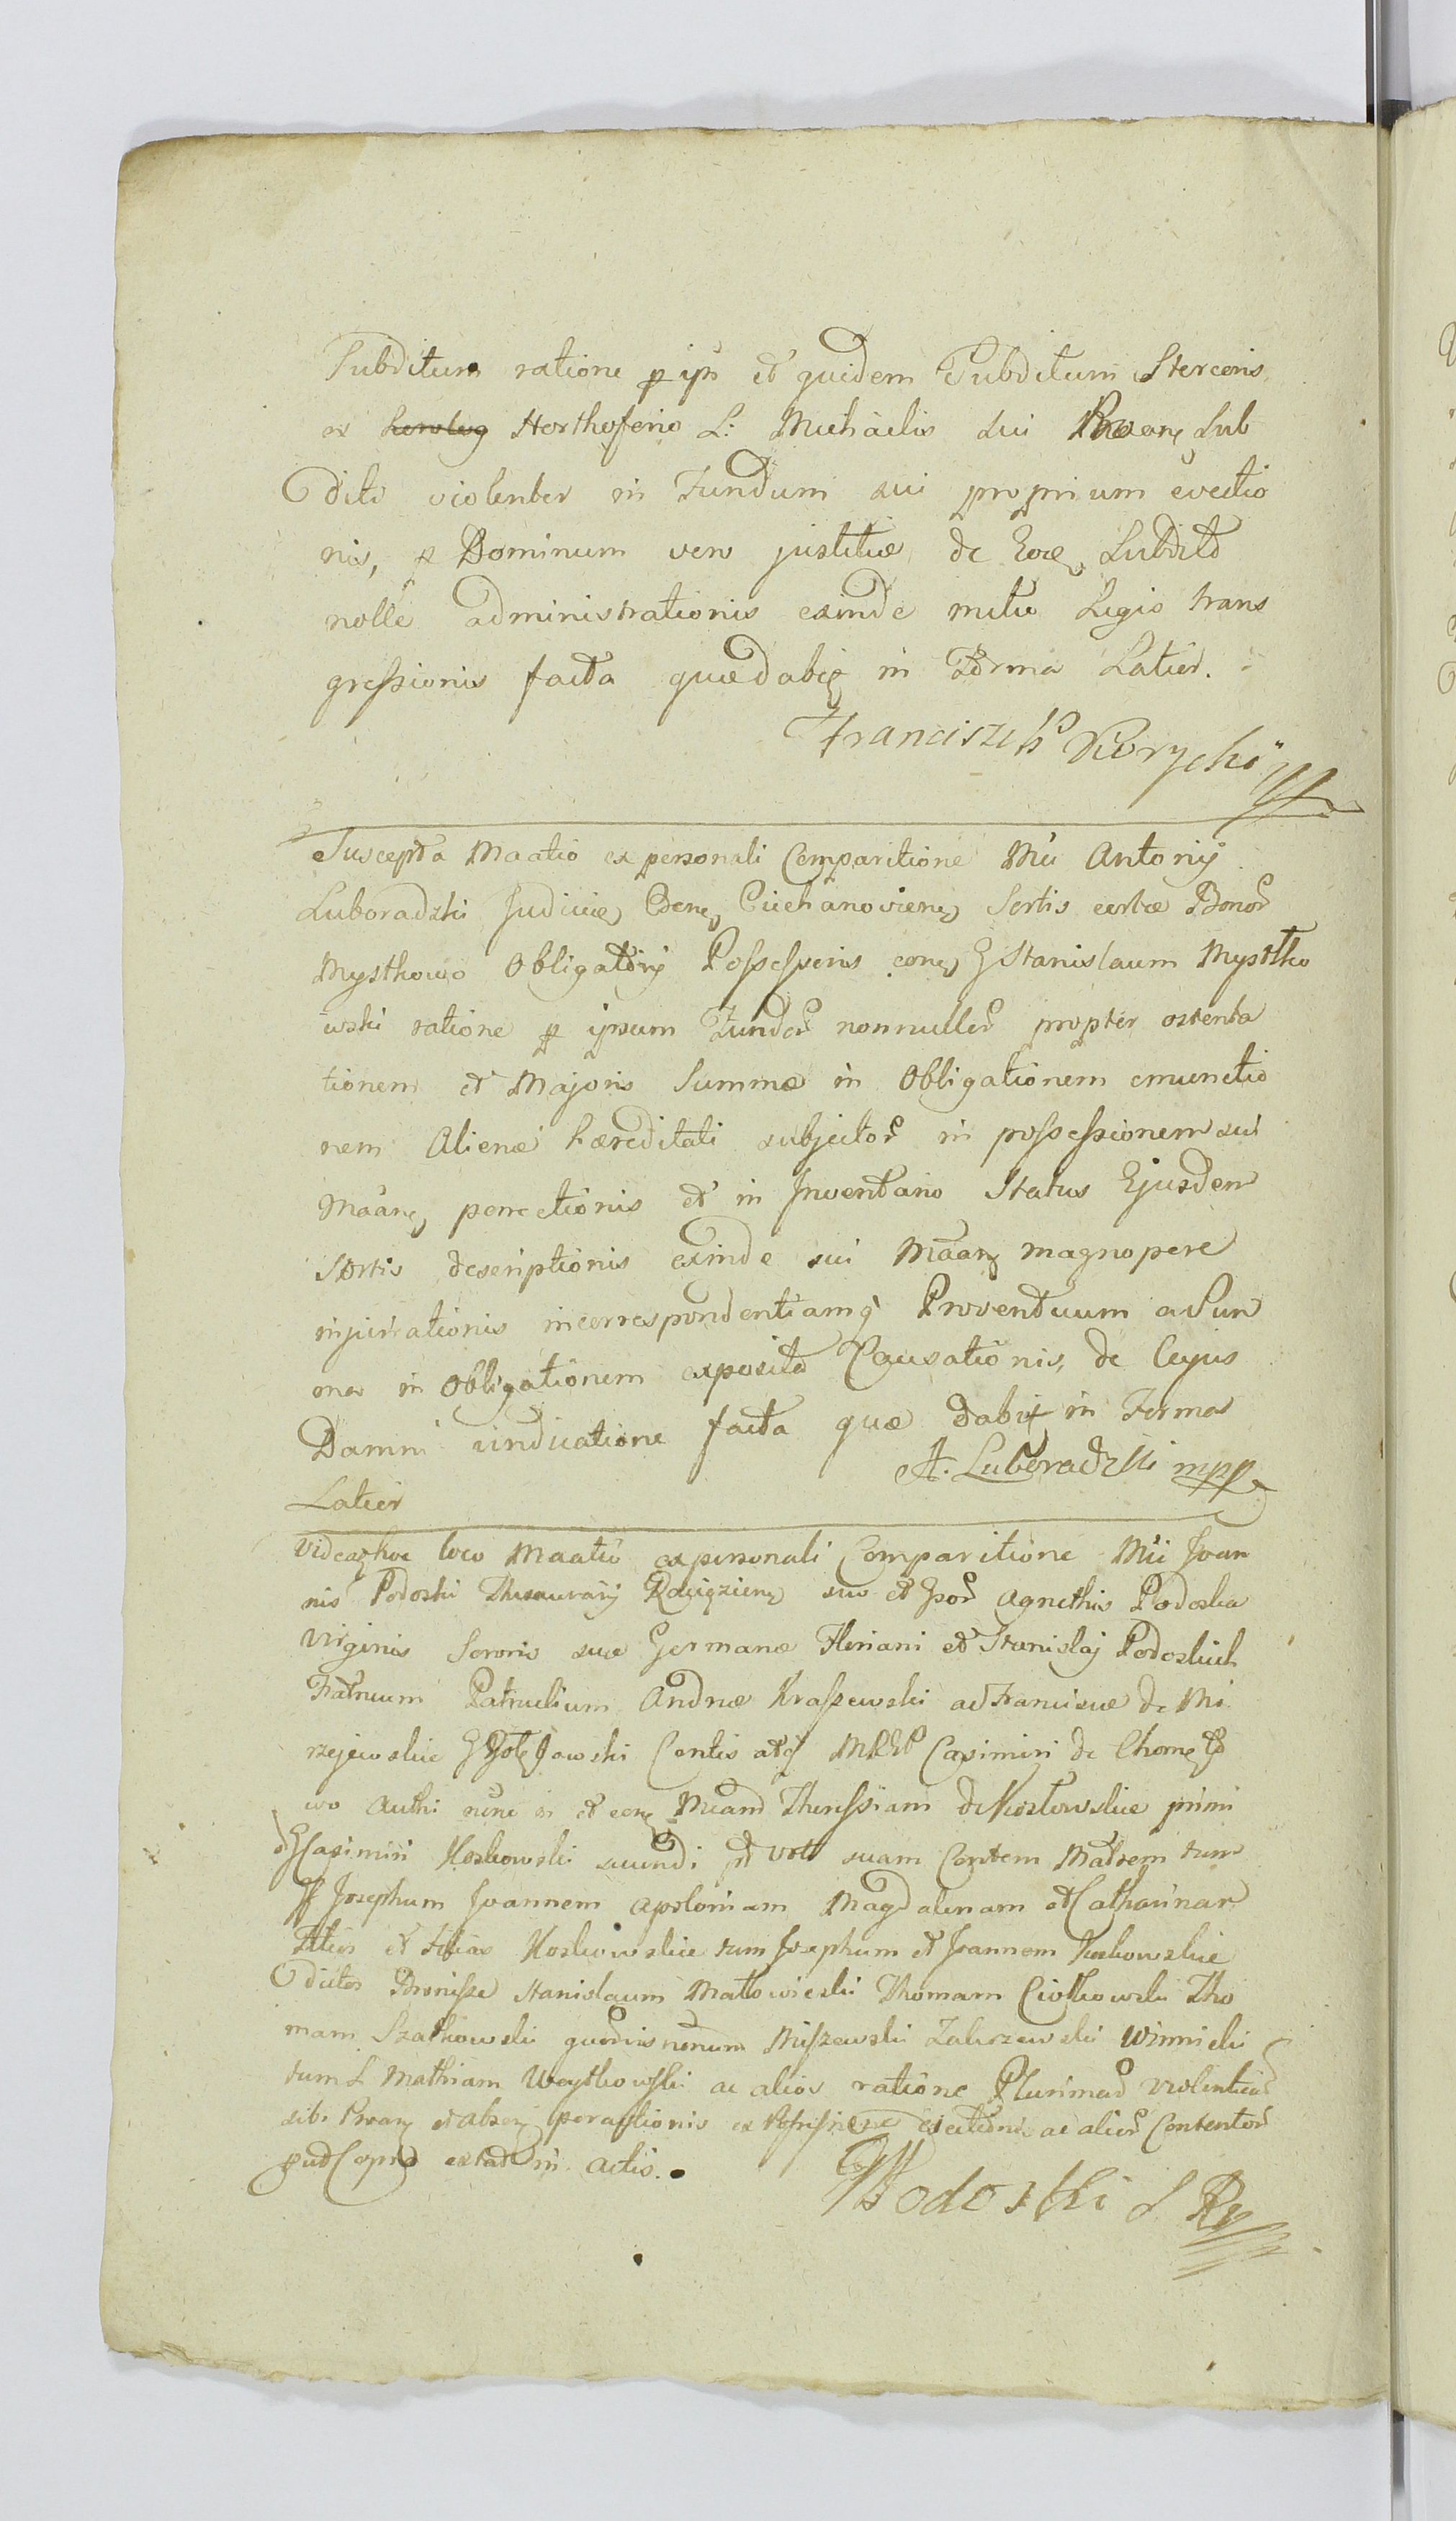 Subditum ratione p ipm et quidem Subditum Stercoris
ex Horthoferio L: Michaelis sui Sub
diti violenter in Fundum sui proprium evectio
nis, p Dominum vero justitiæ de Subdito
nolle administrationis exinde Legis trans
gressionis facta quæ dabiq in Forma Latior.
Franciszek
Suscepta Maatio ex personali Comparitione Mci Antonij
Luboradzki Judicis Ciechanovien Sortis certæ Bonor
Mystkowo Obligatorij Possessoris con G Stanislaum Mystko
wski ratione p ipsum Fundor nonnullor propter ostenta
tionem et Majoris Summæ in Obligationem emunctio
nem Alienæ hæreditati subjector in possessionem sui
Maanq porrectionis et in Inventario Status Ejusdem
Sortis descriptionis exinde sui Maanq magnopere
injuriationis incorrespondentiamq Proventuum a Sum
ma in Obligationem exposita Causationis, de Cujus
Damni vindicatione facta quæ dabit in Forma
A. Luboradzki mpp
Latior
Videazhoc loco Maatio ex personali Comparitione Mci Joan
nis Podoski Thesaurarij suo et Gsor Agnethis Podoska
Virginis Sororis suæ Germanæ Floriani et Stanislaj Podoskich
Fratrum Patruelium Andreæ Kraszewski ac Franciscæ de Mi
rzejewskie Contis atq Casimiri de
wo nunc in et conq Mcam Theressiam de Kozłowskie primi
Casimiri Koskowski secundi voti suam Contem Matrem tum
Josephum Joannem Apoloniam Magdalenam et Catharinam
Filios et Filias Koskowskie tum Josephum et Joannem Koskowskie
dictos Stanislaum Małowieski Thomam Ciołkowski Tho
mam Szatkowski Miszewski Zakrzewski Winnicki
tum L Mathiam ac alios ratione Plurimar violentiar
sibi peractionis ex ac alior Contentor
extat in Actis.
Podoski